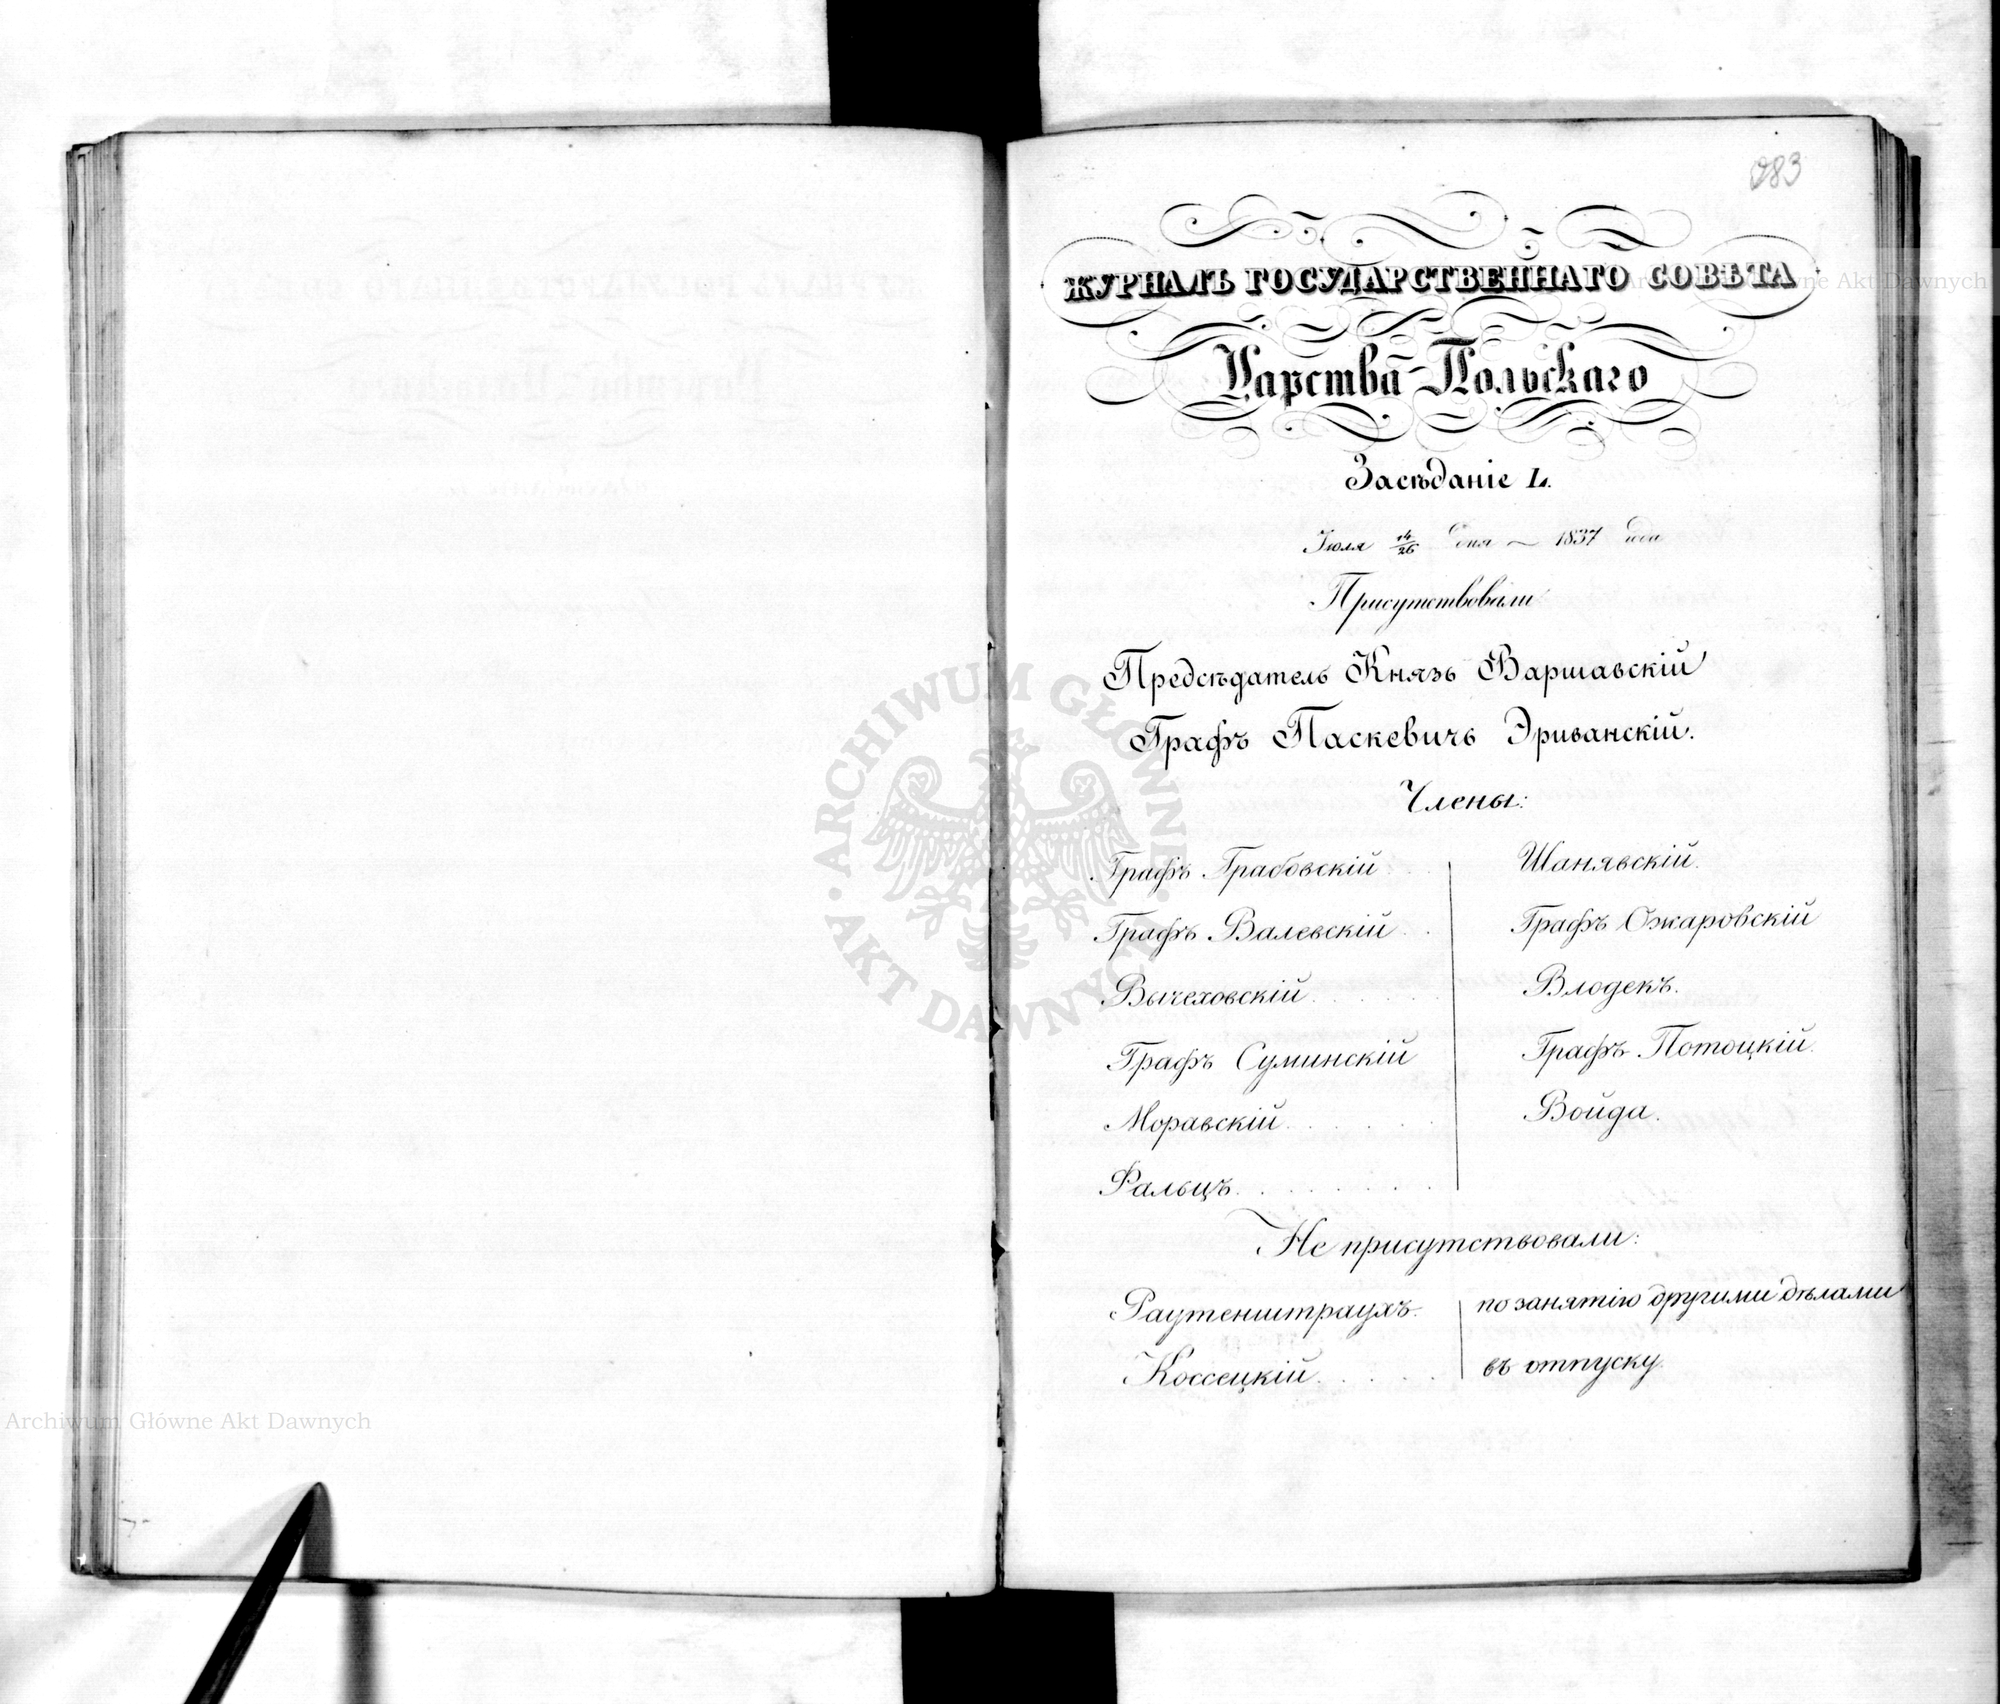 283
ЖУРНАЛЪ ГОСУДАРСТВЕННАГО СОВѢТА
Царства Польскаго
Засѣданіе L.
Іюля 14/26 дня 1837 года
Присутствовали
Предсѣдатель Князь Варшавскій
Графъ Паскевичъ Эриванскій.
Члены:
Графъ Грабовскій. Шанявскій.
Графъ Валевскій. Графъ Ожаровскій
Вычеховскій. Влодекъ.
Графъ Суминскій Графъ Потоцкій.
Моравскій. Войда.
Фальцъ.
Не присутствовали:
Раутенштраухъ. по занятію другими дѣлами
Коссецкій. въ отпуску.
ARCHIWUM GŁÓWNE AKT DAWNYCH
Archiwum Główne Akt Dawnych
Archiwum Główne Akt Dawnych